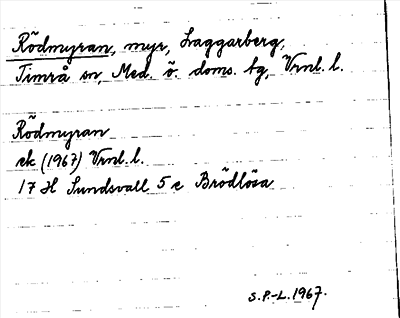 Rödmyran, myr, Laggarberg,
Timrå sn, Med. ö. doms. tg, Vrnl. l.
Rödmyran
ek (1967) Vrnl. l.
17 H Sundsvall 5 c Brödlösa
S.P.-L. 1967.